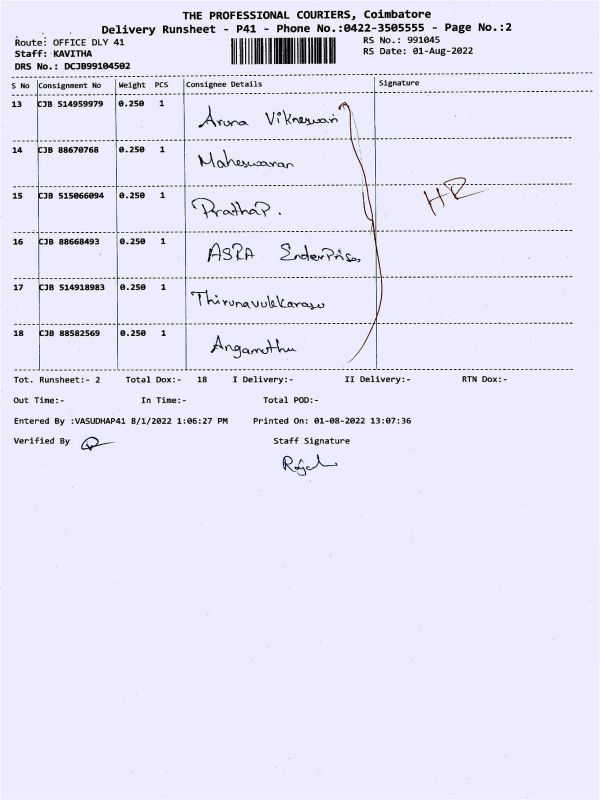 THE PROFESSIONAL COURIERS, Coimbatore
Delivery Runsheet - P41 - Phone No.:0422-3505555 - Page No.:2
Route: OFFICE DLY 41 RS No.: 991045
Staff: KAVITHA RS Date: 01-Aug-2022
DRS No.: DCJB99104502
S No Consignment No Weight PCS Consignee Details Signature
13 CJB 514959979 0.250 1 Aruna Vikneswari
14 CJB 88670768 0.250 1 Maheswaran
15 CJB 515066094 0.250 1 Prathap. HR
16 CJB 88668493 0.250 1 ASRA Enderprises
17 CJB 514918983 0.250 1 Thirunavukkarasu
18 CJB 88582569 0.250 1 Angamuthu
Tot. Runsheet:- 2 Total Dox:- 18 I Delivery:- II Delivery:- RTN Dox:-
Out Time:- In Time:- Total POD:-
Entered By :VASUDHAP41 8/1/2022 1:06:27 PM Printed On: 01-08-2022 13:07:36
Verified By Staff Signature